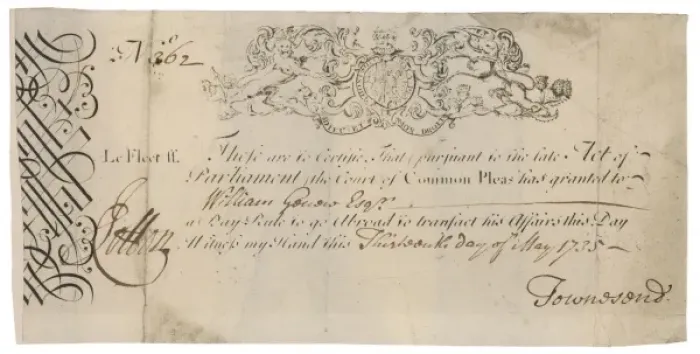 No 362
HONI SOIT QUI MAL Y PENSE
DIEU ET MON DROIT
Le Fleet ss. These are to Certify, That pursuant to the late Act of
Parliament the Court of Common Pleas has granted to
William Esqr.
a Day Rule to go Abroad to transact his Affairs this Day
Witness my Hand this Thirteenth day of May 1735
Townesend.